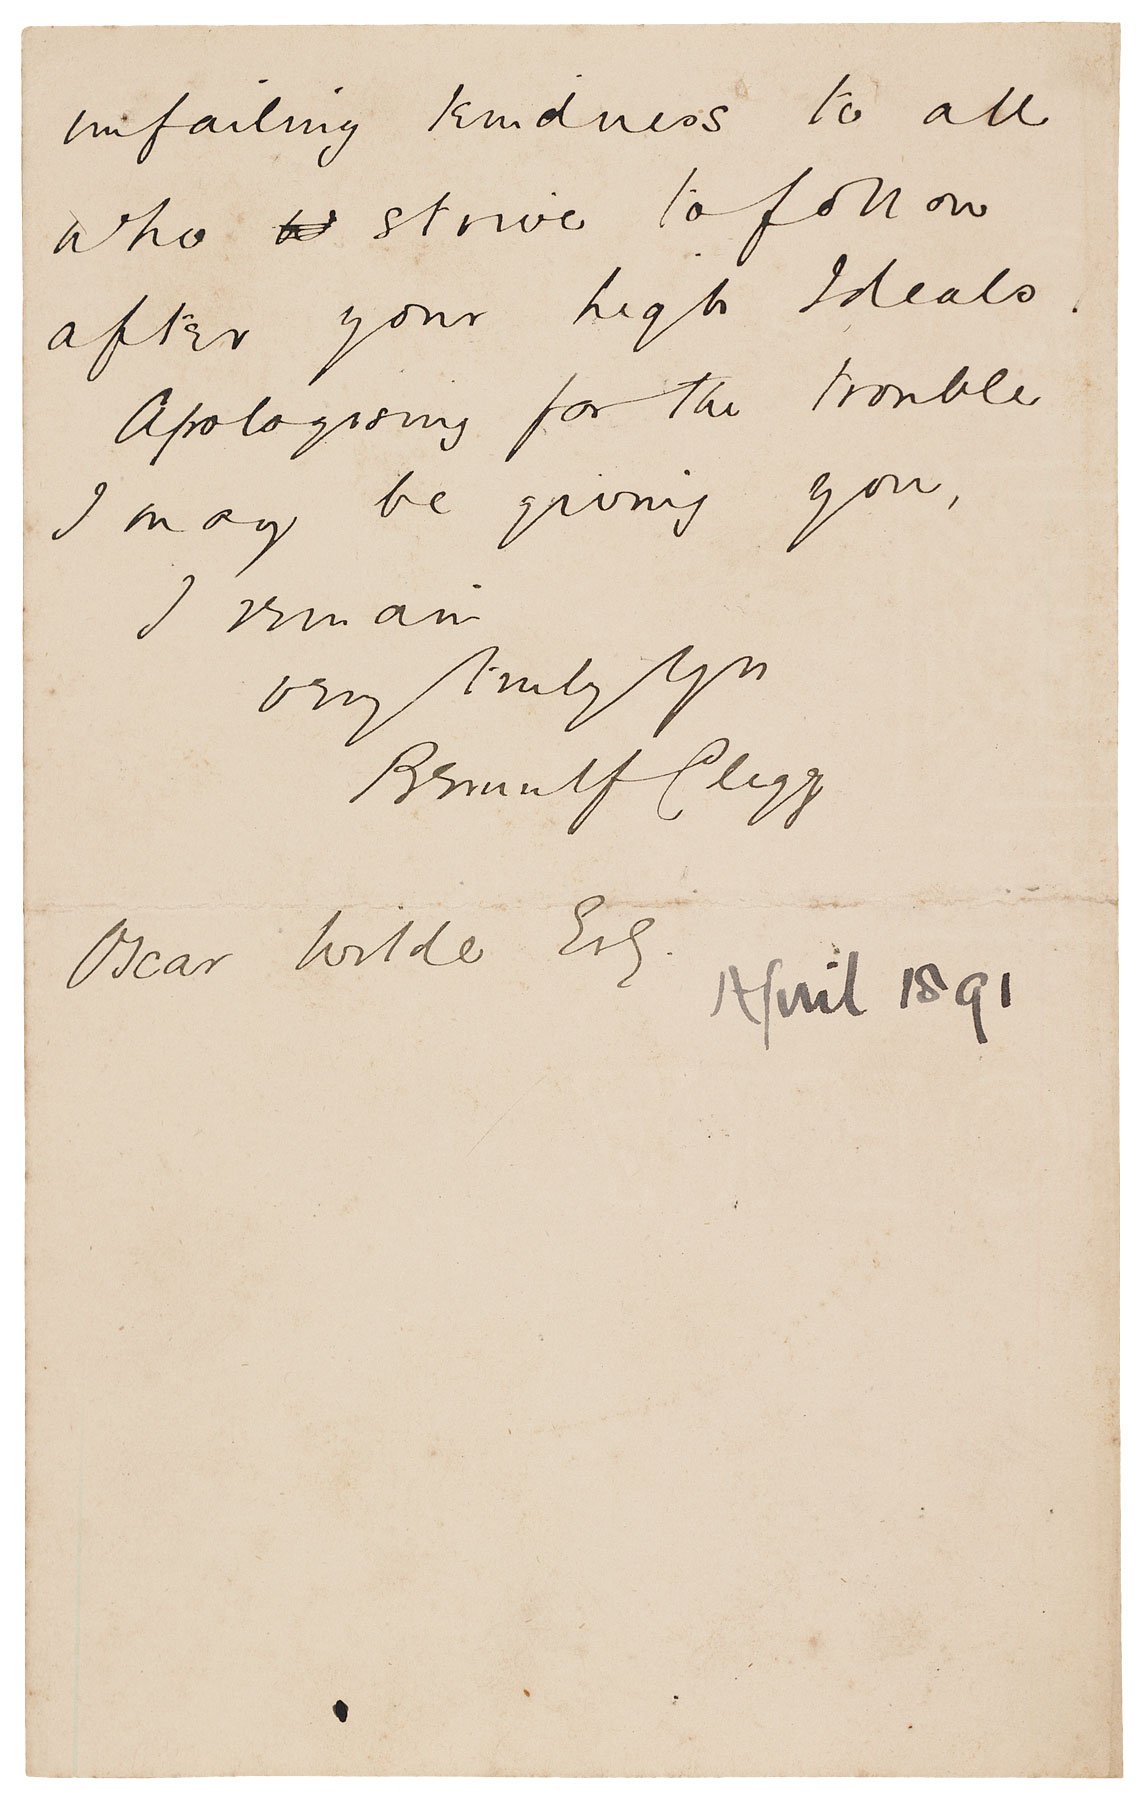 unfailing kindness to all
who strive to follow
after your high Ideals.
Apologising for the trouble
I may be giving you,
I remain
very truly Yrs
Bernulf Clegg
Oscar Wilde Esq.
April 1891